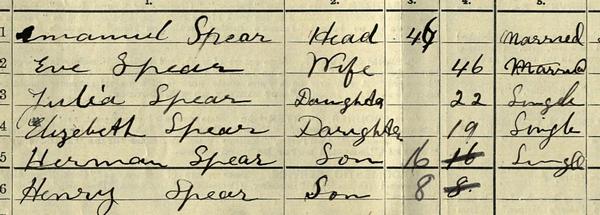 1. 2. 3. 4. 5.
1 Emanuel Spear Head Married
2 Eve Spear Wife 46 Married
3 Julia Spear Daughter 22 Single
4 Elizebeth Spear Daughter 19 Single
5 Herman Spear Son 16 16 Single
6 Henry Spear Son 8 8